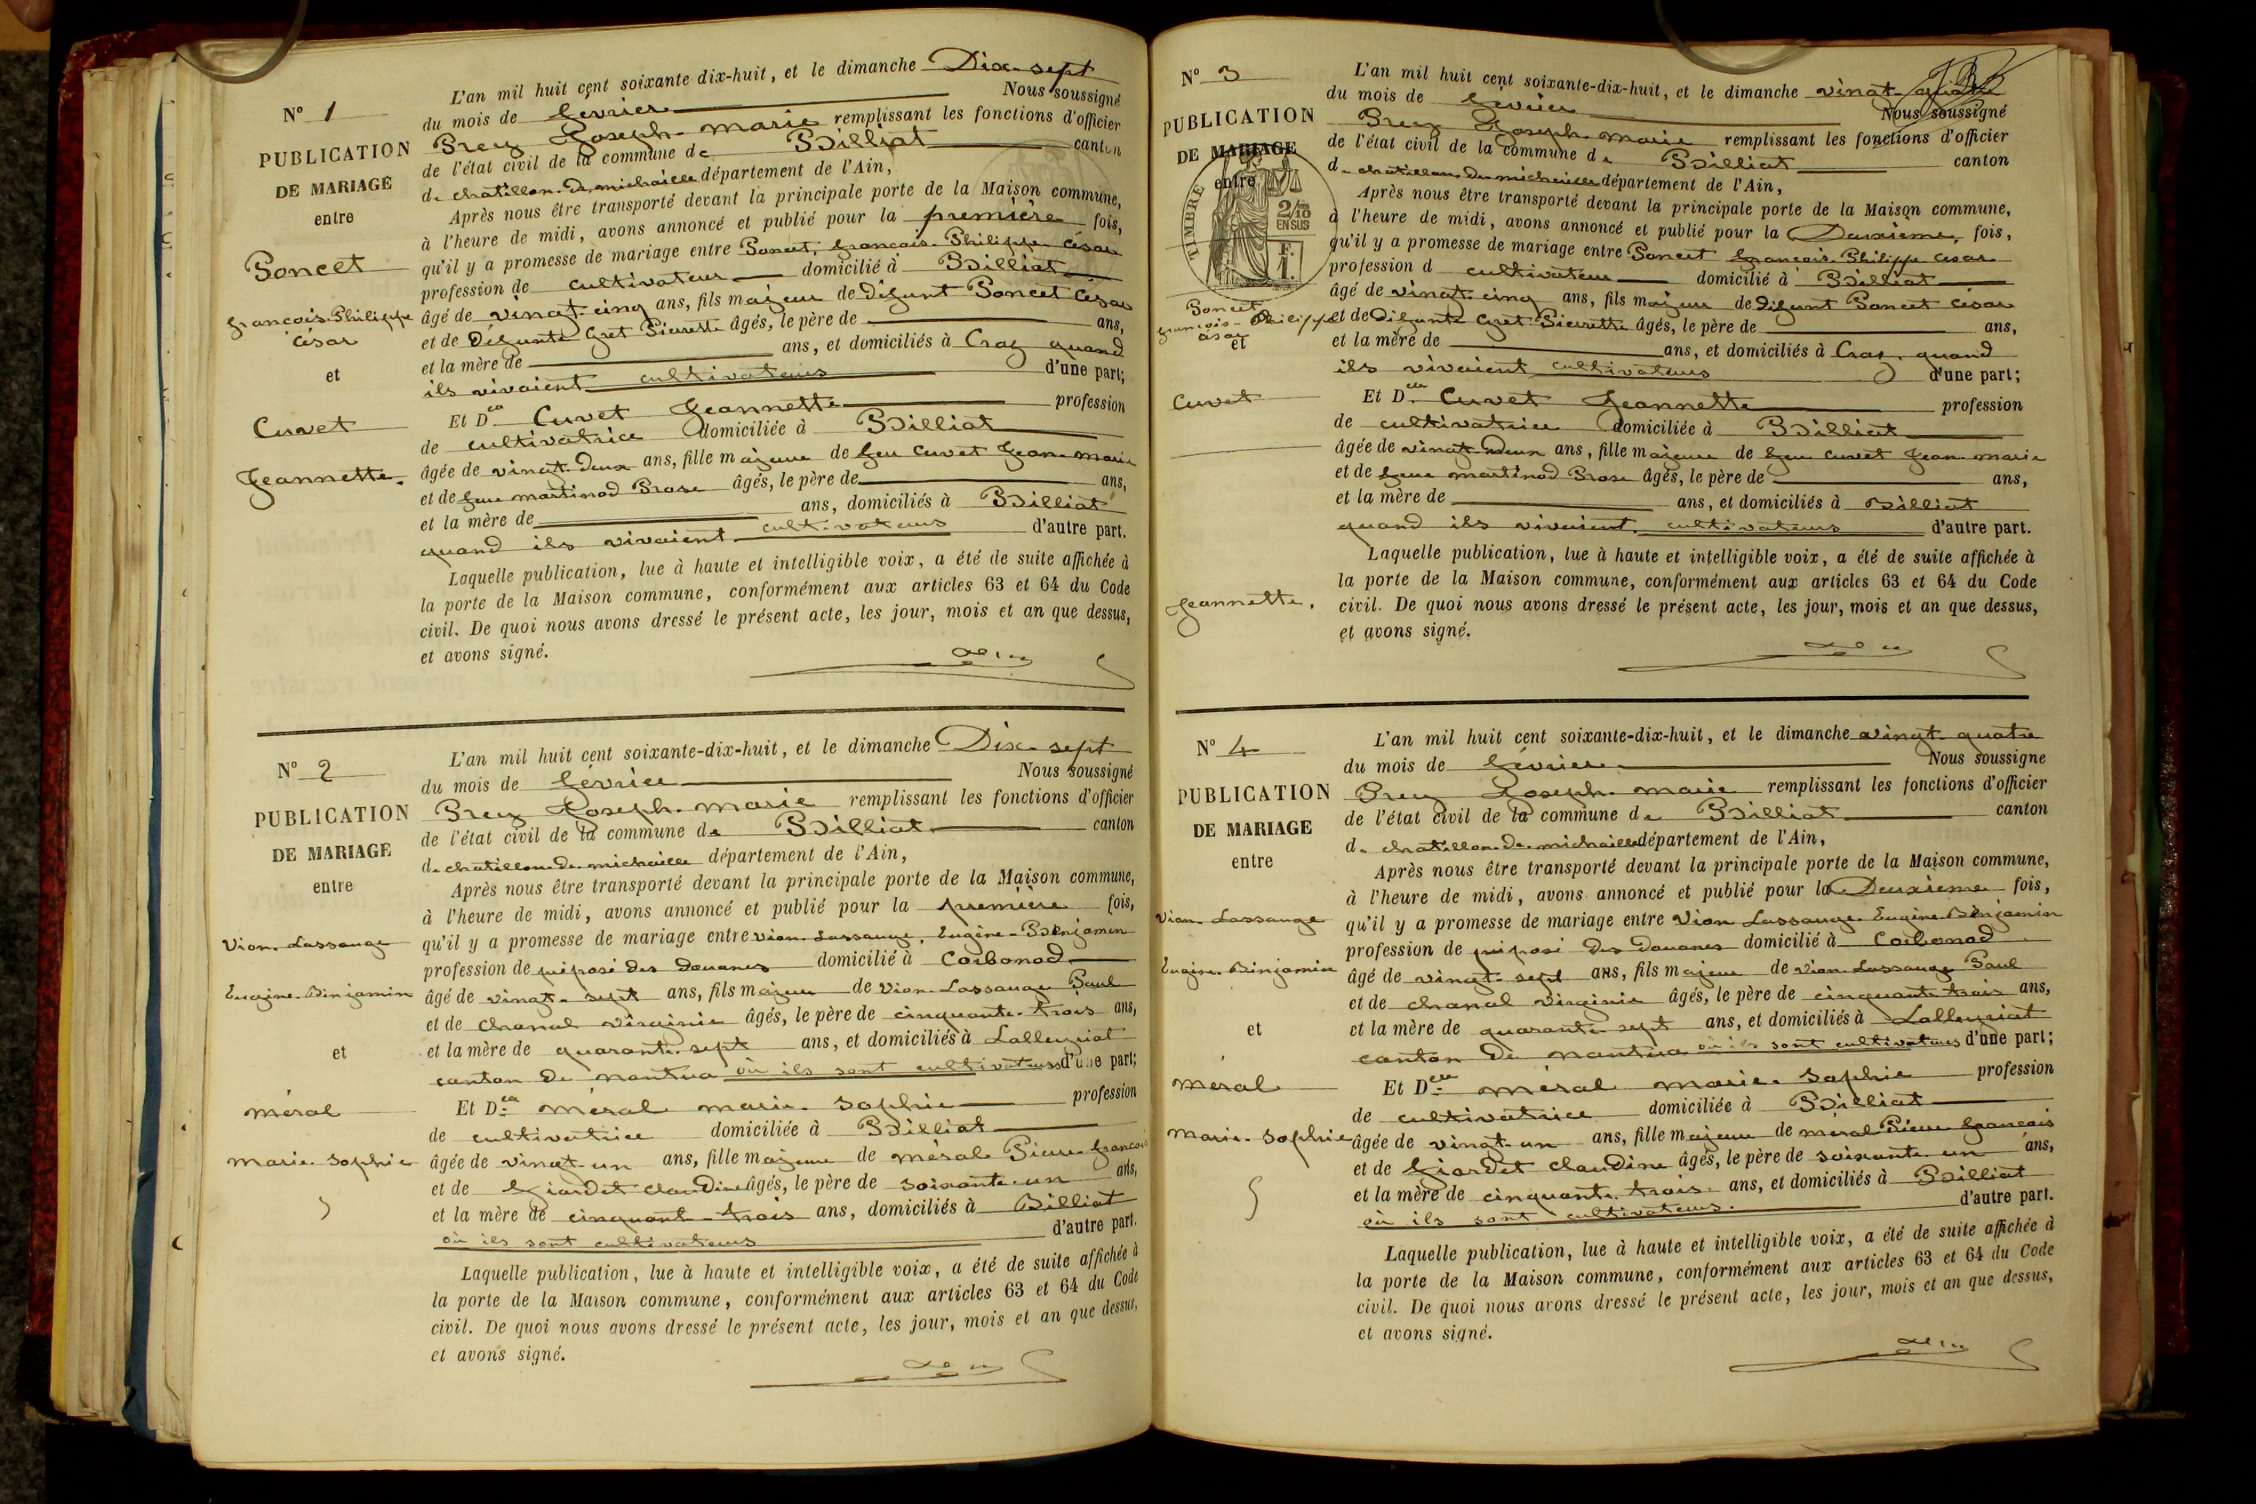 N° 1
PUBLICATION
DE MARIAGE
entre
Poncet
françois-Philippe
César
et
Cuvet
Jeannette.
L'an mil huit cent soixante-dix-huit, et le dimanche Dix-sept
du mois de février Nous soussigné
Joseph-marie remplissant les fonctions d'officier
de l'état civil de la commune de Billiat canton
de chatillon-de-michaille département de l'Ain,
Après nous être transporté devant la principale porte de la Maison commune,
à l'heure de midi, avons annoncé et publié pour la première fois,
qu'il y a promesse de mariage entre Poncet, françois-Philippe César
profession de cultivateur domicilié à Billiat
âgé de vingt-cinq ans, fils majeur de défunt Poncet César
et de Défunte Gret Pierrette âgés, le père de ans,
et la mère de ans, et domiciliés à Craz quand
ils vivaient cultivateurs d'une part;
Et Dlle Cuvet Jeannette profession
de cultivatrice domiciliée à Billiat
âgée de vingt-deux ans, fille majeure de feu Cuvet Jean-marie
et de feue martinod Rose âgés, le père de ans,
et la mère de ans, domiciliés à Billiat
quand ils vivaient cultivateurs d'autre part.
Laquelle publication, lue à haute et intelligible voix, a été de suite affichée à
la porte de la Maison commune, conformément aux articles 63 et 64 du Code
civil. De quoi nous avons dressé le présent acte, les jour, mois et an que dessus,
et avons signé.
N° 2
PUBLICATION
DE MARIAGE
entre
Vion-Lassauge
Eugène-Benjamin
et
méral
marie-sophie
L'an mil huit cent soixante-dix-huit, et le dimanche Dix-sept
du mois de février Nous soussigné
Joseph-marie remplissant les fonctions d'officier
de l'état civil de la commune de Billiat canton
de chatillon-de-michaille département de l'Ain,
Après nous être transporté devant la principale porte de la Maison commune,
à l'heure de midi, avons annoncé et publié pour la première fois,
qu'il y a promesse de mariage entre Vion-Lassauge, Eugène-Benjamin
profession de préposé des douanes domicilié à Corbonod
âgé de vingt-sept ans, fils majeur de Vion-Lassauge Paul
et de chanal virginie âgés, le père de cinquante-trois ans,
et la mère de quarante-sept ans, et domiciliés à Lalleyriat
canton de nantua où ils sont cultivateurs d'une part;
Et Dlle méral marie-sophie profession
de cultivatrice domiciliée à Billiat
âgée de vingt-un ans, fille majeure de méral Pierre-françois
et de Girardet claudine âgés, le père de soixante-un ans,
et la mère de cinquante-trois ans, domiciliés à Billiat
où ils sont cultivateurs d'autre part.
Laquelle publication, lue à haute et intelligible voix, a été de suite affichée à
la porte de la Maison commune, conformément aux articles 63 et 64 du Code
civil. De quoi nous avons dressé le présent acte, les jour, mois et an que dessus,
et avons signé.
N° 3
PUBLICATION
DE MARIAGE
entre
TIMBRE
2/10
EN SUS
Poncet
françois-Philippe
César
et
Cuvet
Jeannette.
L'an mil huit cent soixante-dix-huit, et le dimanche vingt-quatre
du mois de février Nous soussigné
Joseph-marie remplissant les fonctions d'officier
de l'état civil de la commune de Billiat canton
de chatillon-de-michaille département de l'Ain,
Après nous être transporté devant la principale porte de la Maison commune,
à l'heure de midi, avons annoncé et publié pour la Deuxième fois,
qu'il y a promesse de mariage entre Poncet françois-Philippe César
profession d cultivateur domicilié à Billiat
âgé de vingt-cinq ans, fils majeur de défunt Poncet César
et de Défunte Gret Pierrette âgés, le père de ans,
et la mère de ans, et domiciliés à Craz, quand
ils vivaient cultivateurs d'une part;
Et Dlle Cuvet Jeannette profession
de cultivatrice domiciliée à Billiat
âgée de vingt-deux ans, fille majeure de feu Cuvet Jean-marie
et de feue martinod Rose âgés, le père de ans,
et la mère de ans, et domiciliés à Billiat
quand ils vivaient cultivateurs d'autre part.
Laquelle publication, lue à haute et intelligible voix, a été de suite affichée à
la porte de la Maison commune, conformément aux articles 63 et 64 du Code
civil. De quoi nous avons dressé le présent acte, les jour, mois et an que dessus,
et avons signé.
N° 4
PUBLICATION
DE MARIAGE
entre
Vion-Lassauge
Eugène-Benjamin
et
méral
marie-sophie
L'an mil huit cent soixante-dix-huit, et le dimanche vingt-quatre
du mois de février Nous soussigné
Joseph-marie remplissant les fonctions d'officier
de l'état civil de la commune de Billiat canton
de chatillon-de-michaille département de l'Ain,
Après nous être transporté devant la principale porte de la Maison commune,
à l'heure de midi, avons annoncé et publié pour la Deuxième fois,
qu'il y a promesse de mariage entre Vion-Lassauge Eugène-Benjamin
profession de préposé des douanes domicilié à Corbonod
âgé de vingt-sept ans, fils majeur de Vion-Lassauge Paul
et de chanal virginie âgés, le père de cinquante-trois ans,
et la mère de quarante-sept ans, et domiciliés à Lalleyriat
canton de nantua où ils sont cultivateurs d'une part;
Et Dlle méral marie-sophie profession
de cultivatrice domiciliée à Billiat
âgée de vingt-un ans, fille majeure de méral Pierre-françois
et de Girardet claudine âgés, le père de soixante-un ans,
et la mère de cinquante-trois ans, et domiciliés à Billiat
où ils sont cultivateurs. d'autre part.
Laquelle publication, lue à haute et intelligible voix, a été de suite affichée à
la porte de la Maison commune, conformément aux articles 63 et 64 du Code
civil. De quoi nous avons dressé le présent acte, les jour, mois et an que dessus,
et avons signé.